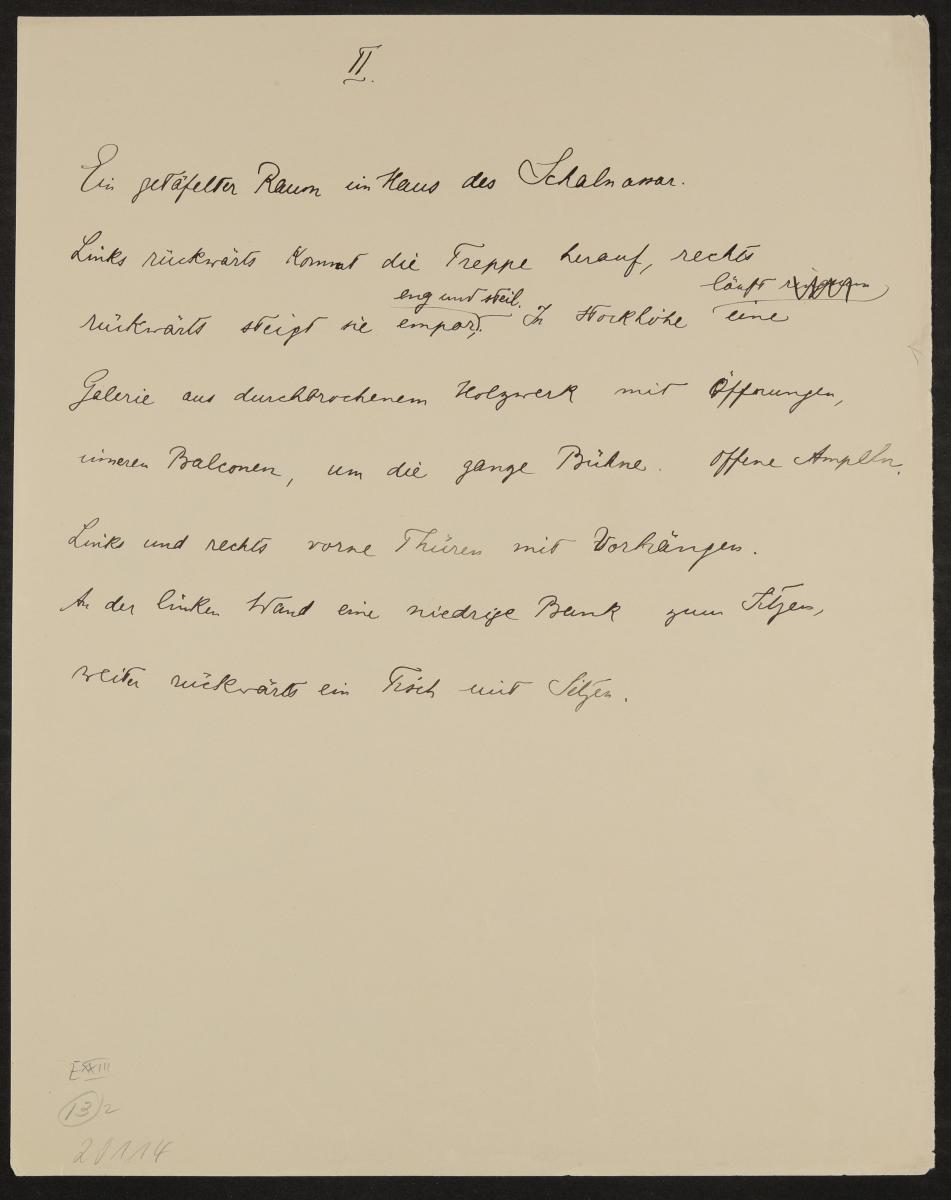 II.
Ein getäfelter Raum im Haus des Schalnassar.
Links rückwärts kommt die Treppe herauf, rechts
eng und steil. läuft
rückwärts steigt sie empor, In Stockhöhe eine
Galerie aus durchbrochenem Holzwerk mit Öffnungen,
inneren Balconen, um die ganze Bühne. Offene Ampeln.
Links und rechts vorne Thüren mit Vorhängen.
An der linken Wand eine niedrige Bank zum Sitzen,
weiter rückwärts ein Tisch mit Sitzen.
EXXIII
13)2
20114